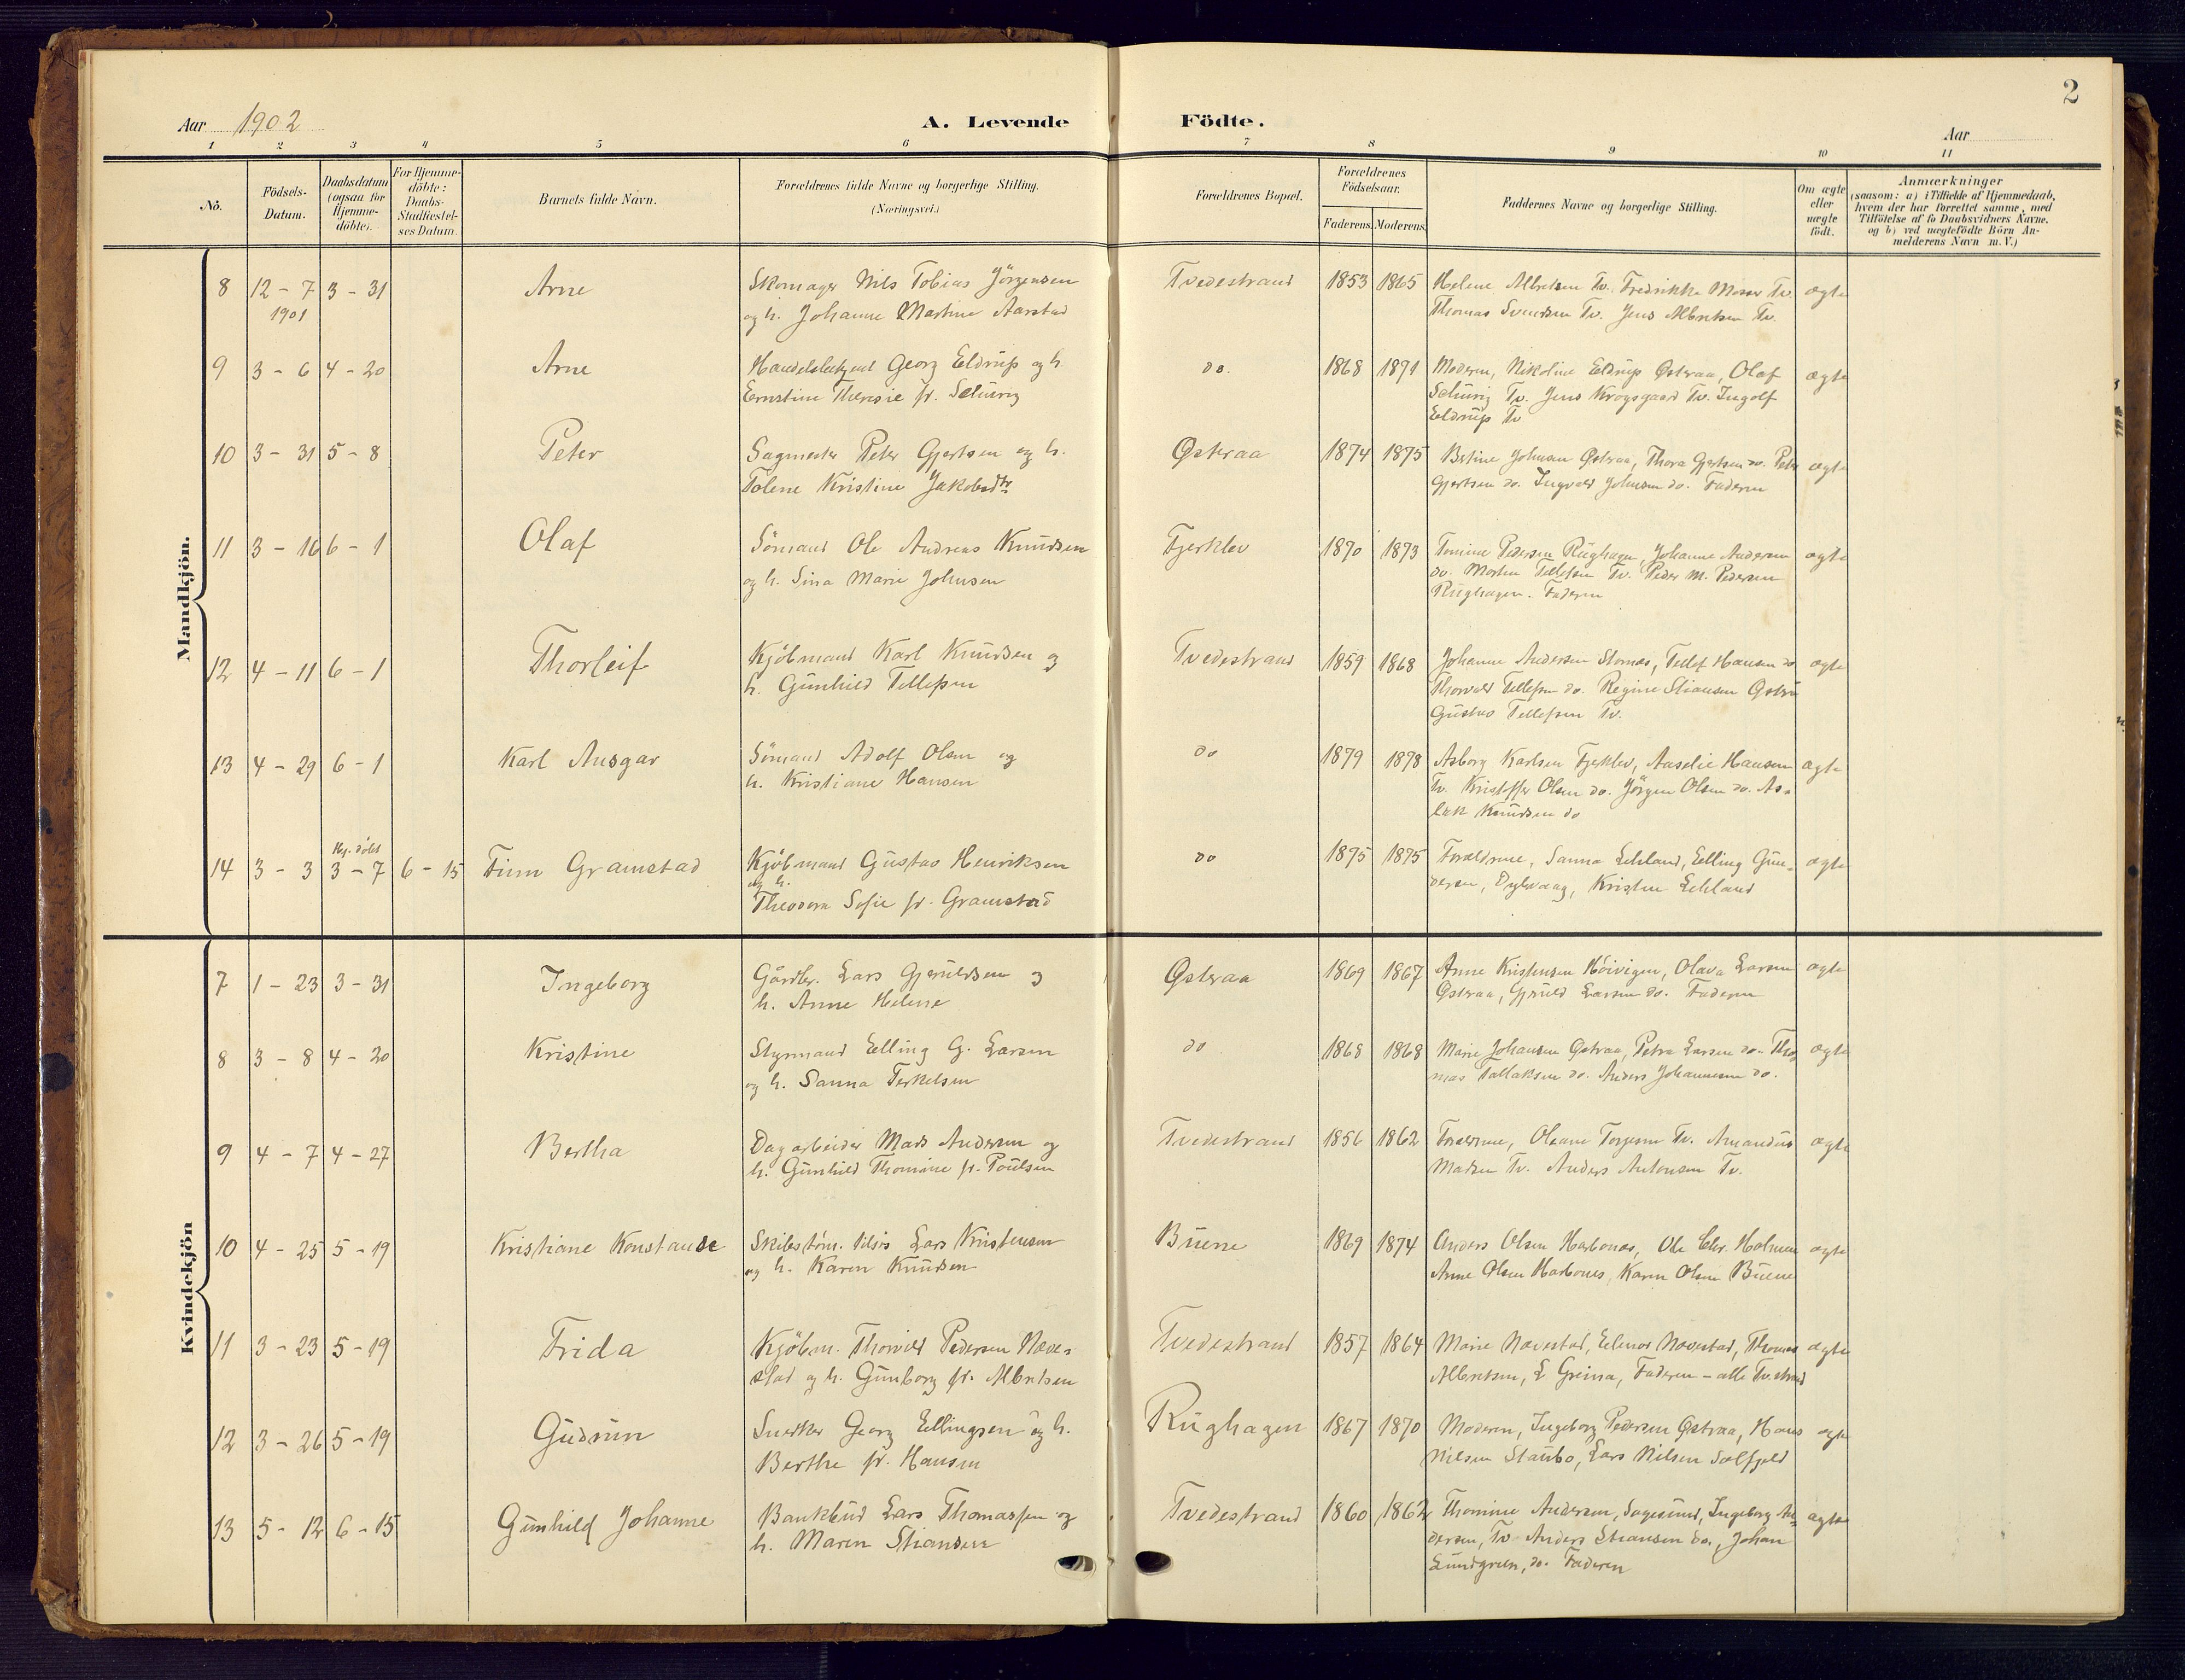 2
Aar 1902
A. Levende Födte.
Aar
1 2 3 4 5 6 7 8 9 10 11
Nö.
Födsels-
Datum.
Daabsdatum
(ogsaa for
Hjemme-
döbte).
For Hjemme-
döbte:
Daabs-
Stadfæstel-
ses Datum.
Barnets fulde Navn.
Forældrenes fulde Navne og borgerlige Stilling.
(Næringsvei.)
Forældrenes Bopæl.
Forældrenes
Födselsaar.
Faderens. Moderens.
Faddernes Navne og borgerlige Stilling.
Om ægte
eller
uægte
födt.
Anmærkninger
(saasom: a) i Tilfælde af Hjemmedaab,
hvem der har forrettet samme, med
Tilföielse af to Daabsvidners Navne,
og b) ved uægtefödte Börn An-
melderens Navn m.V.)
Mandkjön.
8 12 - 7 3 - 31 Arne Skomager Nils Tobias Jörgensen Tvedestrand 1853 1865 Helene Albretsen Tv. Fredrikke Moser Tv. ægte
1901 og h. Johanne Martine Aarstad Thomas Svendsen Tv. Jens Albretsen Tv.
9 3 - 6 4 - 20 Arne Handelsbetjent Georg Eldrup og h. do. 1868 1871 Moderen, Nikoline Eldrup Østeraa, Olaf ægte
Ernstine Theresie f. Schürig Schürig Tv. Jens Krogsgaard Tv. Ingolf
Eldrup Tv
10 3 - 31 5 - 8 Peter Sagmester Peter Gjertsen og h. Østeraa 1874 1875 Bertine Johnsen Østeraa, Thora Gjertsen do. Peter ægte
Tolene Kristine Jakobsdtr Gjertsen do. Ingvald Johnsen do. Faderen
11 3 - 16 6 - 1 Olaf Sömand Ole Andreas Knudsen Fjerklev 1870 1873 Tomine Pedersen Rughagen, Johanne Andersen ægte
og h. Sina Marie Johnsen do. Morten Tellefsen Tv. Peder M. Pedersen
Rughagen. Faderen
12 4 - 11 6 - 1 Thorleif Kjöbmand Karl Knudsen og Tvedestrand 1859 1868 Johanne Andersen Stornæs, Tellef Hansen do ægte
h. Gunhild Tellefsen Thorvald Tellefsen do. Regine Stiansen Østeraa
Gustav Tellefsen Tv.
13 4 - 29 6 - 1 Karl Ansgar Sömand Adolf Olsen og do 1879 1878 Asborg Karlsen Fjerklev, Aaselie Hansen ægte
h. Kristiane Hansen Tv. Kristoffer Olsen do. Jörgen Olsen do. As-
lak Knudsen do
Hj. döbt
14 3 - 3 3 - 7 6 - 15 Finn Gramstad Kjöbmand Gustav Henriksen do 1875 1875 Forældrene, Sanna Eckland, Elling Gun- ægte
og h.
Theodora Sofie f. Gramstad dersen, Dybvaag, Kristen Eckland
Kvindekjön
7 1 - 23 3 - 31 Ingeborg Gårdbr. Lars Gjeruldsen og Østeraa 1869 1867 Anne Kristensen Höivigen, Olava Larsen ægte
h. Anne Helene Østeraa, Gjeruld Larsen do. Faderen
8 3 - 8 4 - 20 Kristine Styrmand Elling G. Larsen do 1868 1868 Marie Johansen Østeraa, Petra Larsen do. Tho- ægte
og h. Sanna Terkelsen mas Tallaksen do. Anders Johannesen do.
9 4 - 7 4 - 27 Bertha Dagarbeider Mads Andersen og Tvedestrand 1856 1862 Forældrene, Oleane Torjesen Tv. Amandus ægte
h. Gunhild Thomine f. Poulsen Madsen Tv. Anders Antonsen Tv.
10 4 - 25 5 - 19 Kristiane Konstanse Skibstöm. Nils Lars Kristensen Buene 1869 1874 Anders Olsen Harbones, Ole Chr. Holmen ægte
og h. Karen Knudsen Anne Olsen Harbones, Karen Olsen Buene
11 3 - 23 5 - 19 Frida Kjöbm. Thorvald Pedersen Næve- Tvedestrand 1857 1864 Marie Nævestad, Elenor Nævestad, Thomas ægte
stad og h. Gunborg f. Albretsen Albretsen, E Greina, Faderen - alle Tv.strand
12 3 - 26 5 - 19 Gudrun Snedker Georg Ellingsen og h. Rughagen 1867 1870 Moderen, Ingeborg Pedersen Østeraa, Hans ægte
Berthe f. Hansen Nilsen Staubo, Lars Nilsen Solfjeld
13 5 - 12 6 - 15 Gunhild Johanne Bankbud Lars Thomassen og Tvedestrand 1860 1862 Thomine Andersen, Sagesund, Ingeborg An- ægte
h. Maren Stiansen dersen, Tv Anders Stiansen do., Johan
Lundgreen, do. Faderen